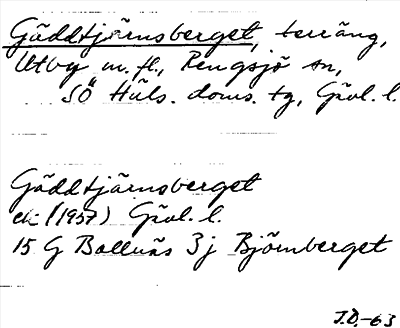 Gäddtjärnsberget, terräng,
Utby m. fl., Rengsjö sn,
SÖ Häls. doms. tg, Gävl. l.
Gäddtjärnsberget
ek (1957) Gävl. l.
15 G Bollnäs 3j Björnberget
J.D.-63